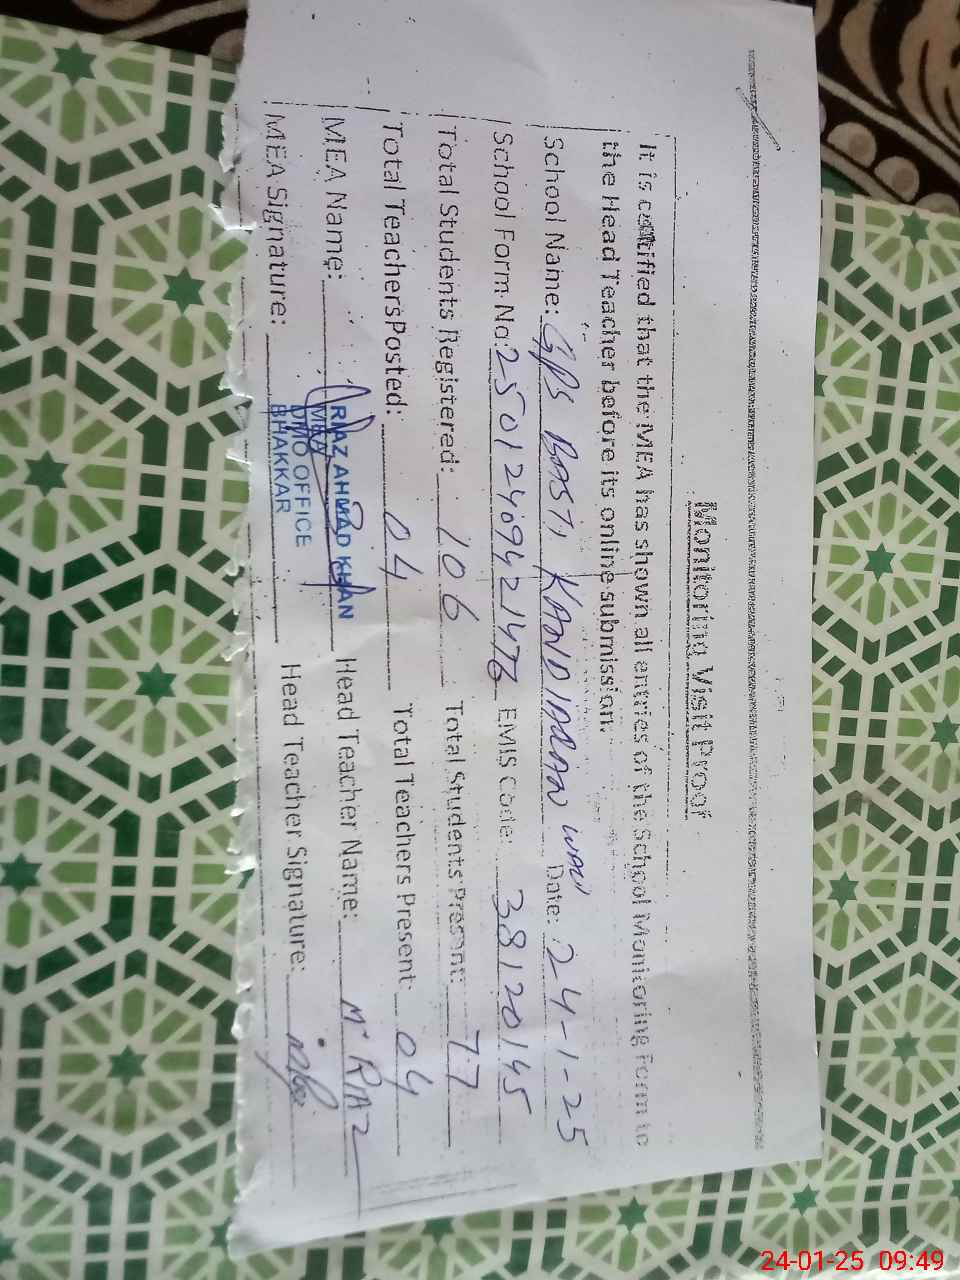 Monitoring Visit Proof
It is certified that the MEA has shown all entries of the School Monitoring Form to
the Head Teacher before its online submission.
School Name: GPS BASTI KANDIARAN WALI Date: 24-1-25
School Form No: 25012409421476 EMIS Code: 38120145
Total Students Registered: 106 Total Students Present: 77
Total Teachers Posted: 04 Total Teachers Present: 04
MEA Name: RIAZ AHMAD KHAN Head Teacher Name: M. RIAZ
MEA
DMO OFFICE
BHAKKAR
MEA Signature: Head Teacher Signature:
24-01-25 09:49